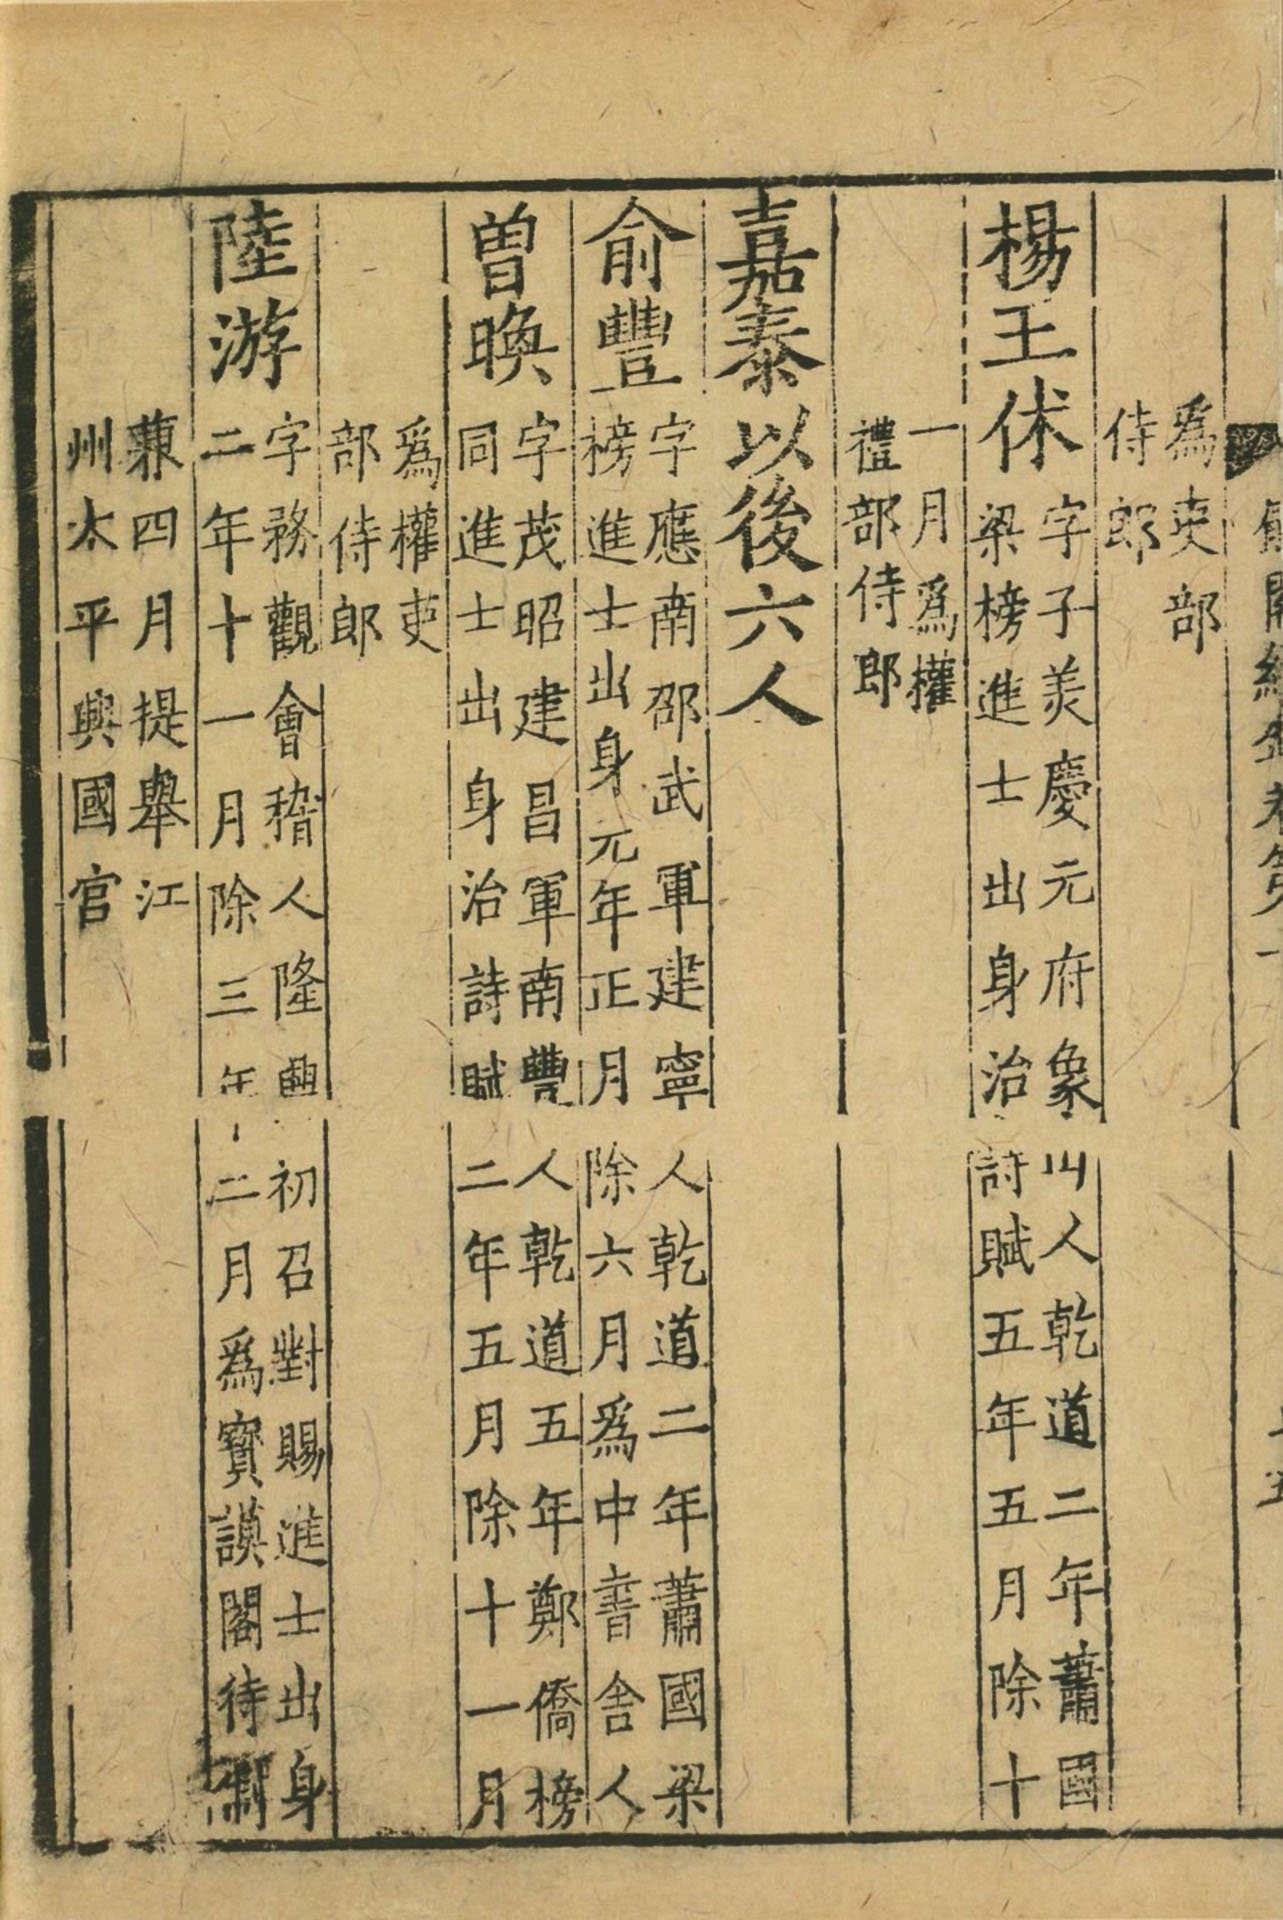 爲吏部
侍郎
楊王休
字子羙慶元府象山人乾道二年蕭國
梁榜進士出身治詩賦五年五月除十
一月爲權
禮部侍郎
嘉泰以後六人
俞豐
字應南邵武軍建寧人乾道二年蕭國梁
榜進士出身元年正月除六月爲中書舍人
曾㬇
字茂昭建昌軍南豐人乾道五年鄭僑榜
同進士出身治詩賦二年五月除十一月
爲權吏
部侍郎
陸游
字務觀會稽人隆興初召對賜進士出身
二年十一月除三年二月爲寶謨閣待制
兼四月提舉江
州太平興國宮